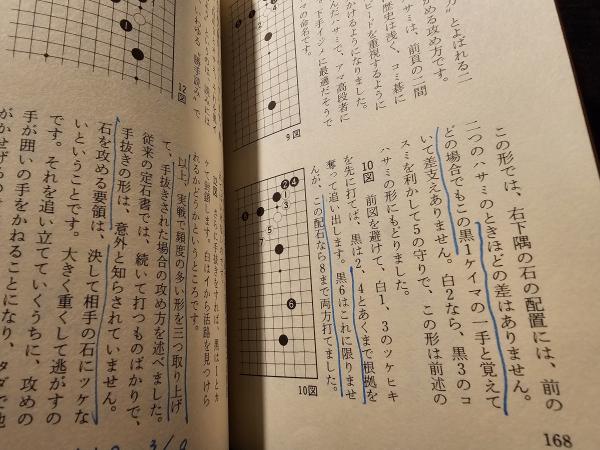 この形では、右下隅の石の配置には、前の
二つのハサミのときほどの差はありません。
どの場合でもこの黒1ケイマの一手と覚えて
いて差支えありません。白2なら、黒3のコ
スミを利かして5の守りで、この形は前述の
ハサミの形にもどりました。
10図　前図を避けて、白1、3のツケヒキ
を先に打てば、黒は2、4とあくまで根拠を
奪って追い出します。黒6はこれに限りませ
んが、この配石なら8まで両方打てました。
10図
168
とよばれる二
める攻め方です。
サミは、前頁の二間
歴史は浅く、コミ碁に
ピードを重視するように
かけるようになりました。
ハサミで、アマ高段者に
下手イジメに最適だそうで
マの命名です。
9図
さらに手抜きをすれば、黒は1とカ
ケて封鎖します。白はイから活路を見つけら
れるかどうかというところです。
以上、実戦で頻度の多い形を三つ取り上げ
て、手抜きされた場合の攻め方を述べました。
従来の定石書では、続いて打つものばかりで、
手抜きの形は、意外と知らされていません。
石を攻める要領は、決して相手の石にツケな
いということです。大きく重くして逃がすの
です。それを追い立てていくうちに、攻めの
手が囲いの手をかねることになり、タダで地
12図